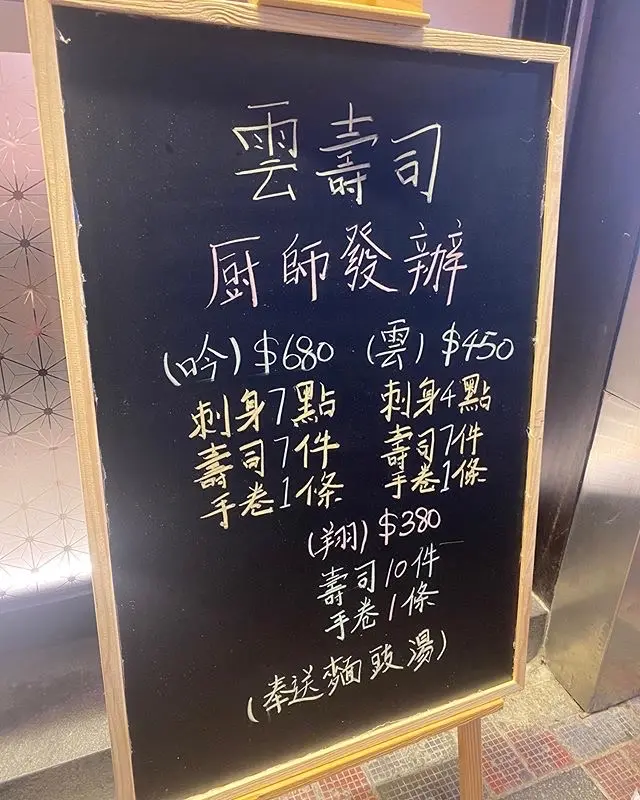 雲壽司
厨師發辦
(吟) $680
刺身7點
壽司7件
手卷1條
(雲) $450
刺身4點
壽司7件
手卷1條
(翔) $380
壽司10件
手卷1條
(奉送麵豉湯)